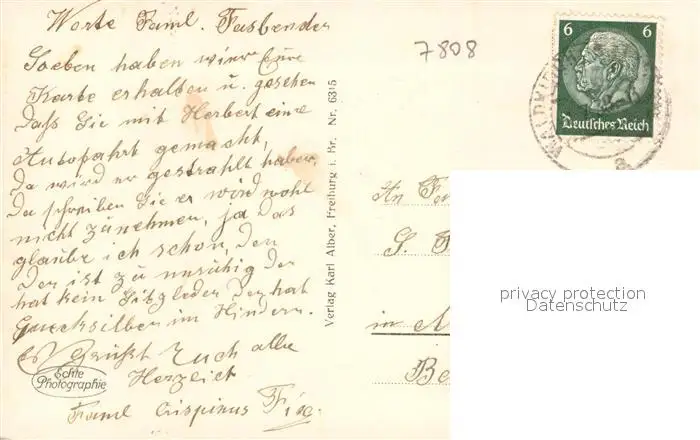 Werte Faml. Fasbender
Soeben haben wir Eure
Karte erhalten u. gesehen
Daß Sie mit Herbert eine
Autofahrt gemacht,
Da wird er gestrahlt haben,
Da schreiben Sie er wird wohl
nicht zunehmen, ja das
glaube ich schon, den
Der ist zu unruhig der
hat kein Sitzgleder Der hat
Quecksilber im Hindern.
Es Grüßt Euch alle
Herzlich
Faml Crispinus
Echte
Photographie
Verlag Karl Alber, Freiburg i. Br. Nr. 6315
7808
6 6
Deutsches Reich
An
in
privacy protection
Datenschutz